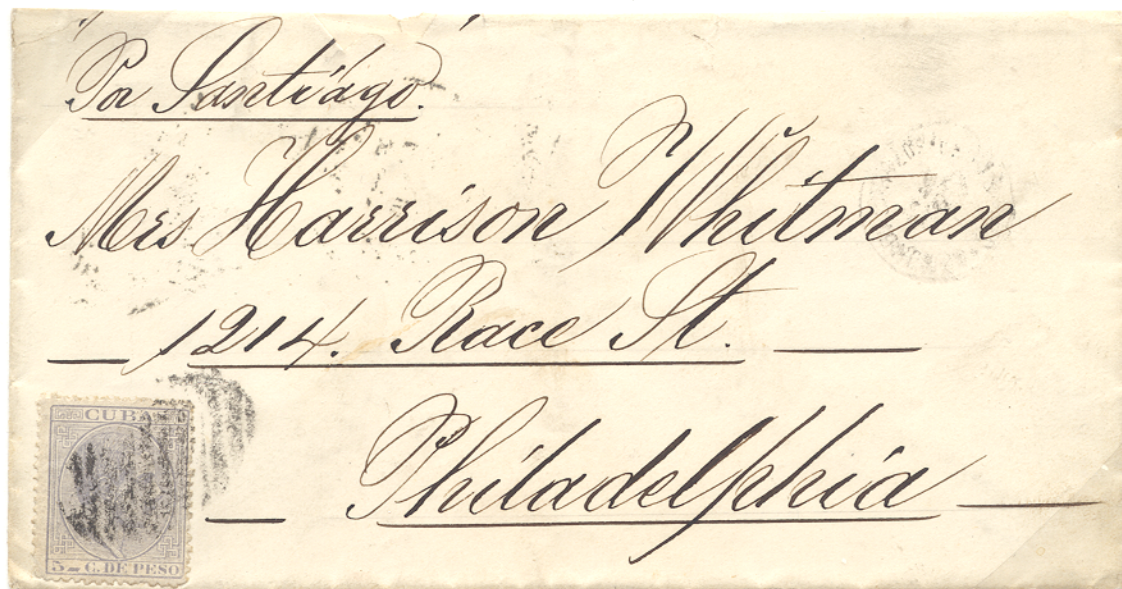 Por Santiago.
Mrs Harrison Whitman
1214. Race St.
Philadelphia
CUBA
5 C. DE PESO